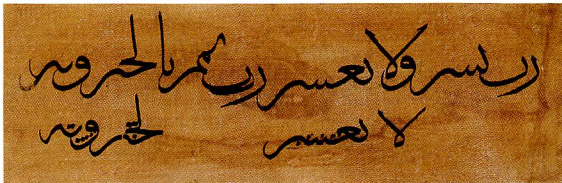 رب يسر ولا تعسر رب تمم بالخير وبه
لا تعسر لخير وبه